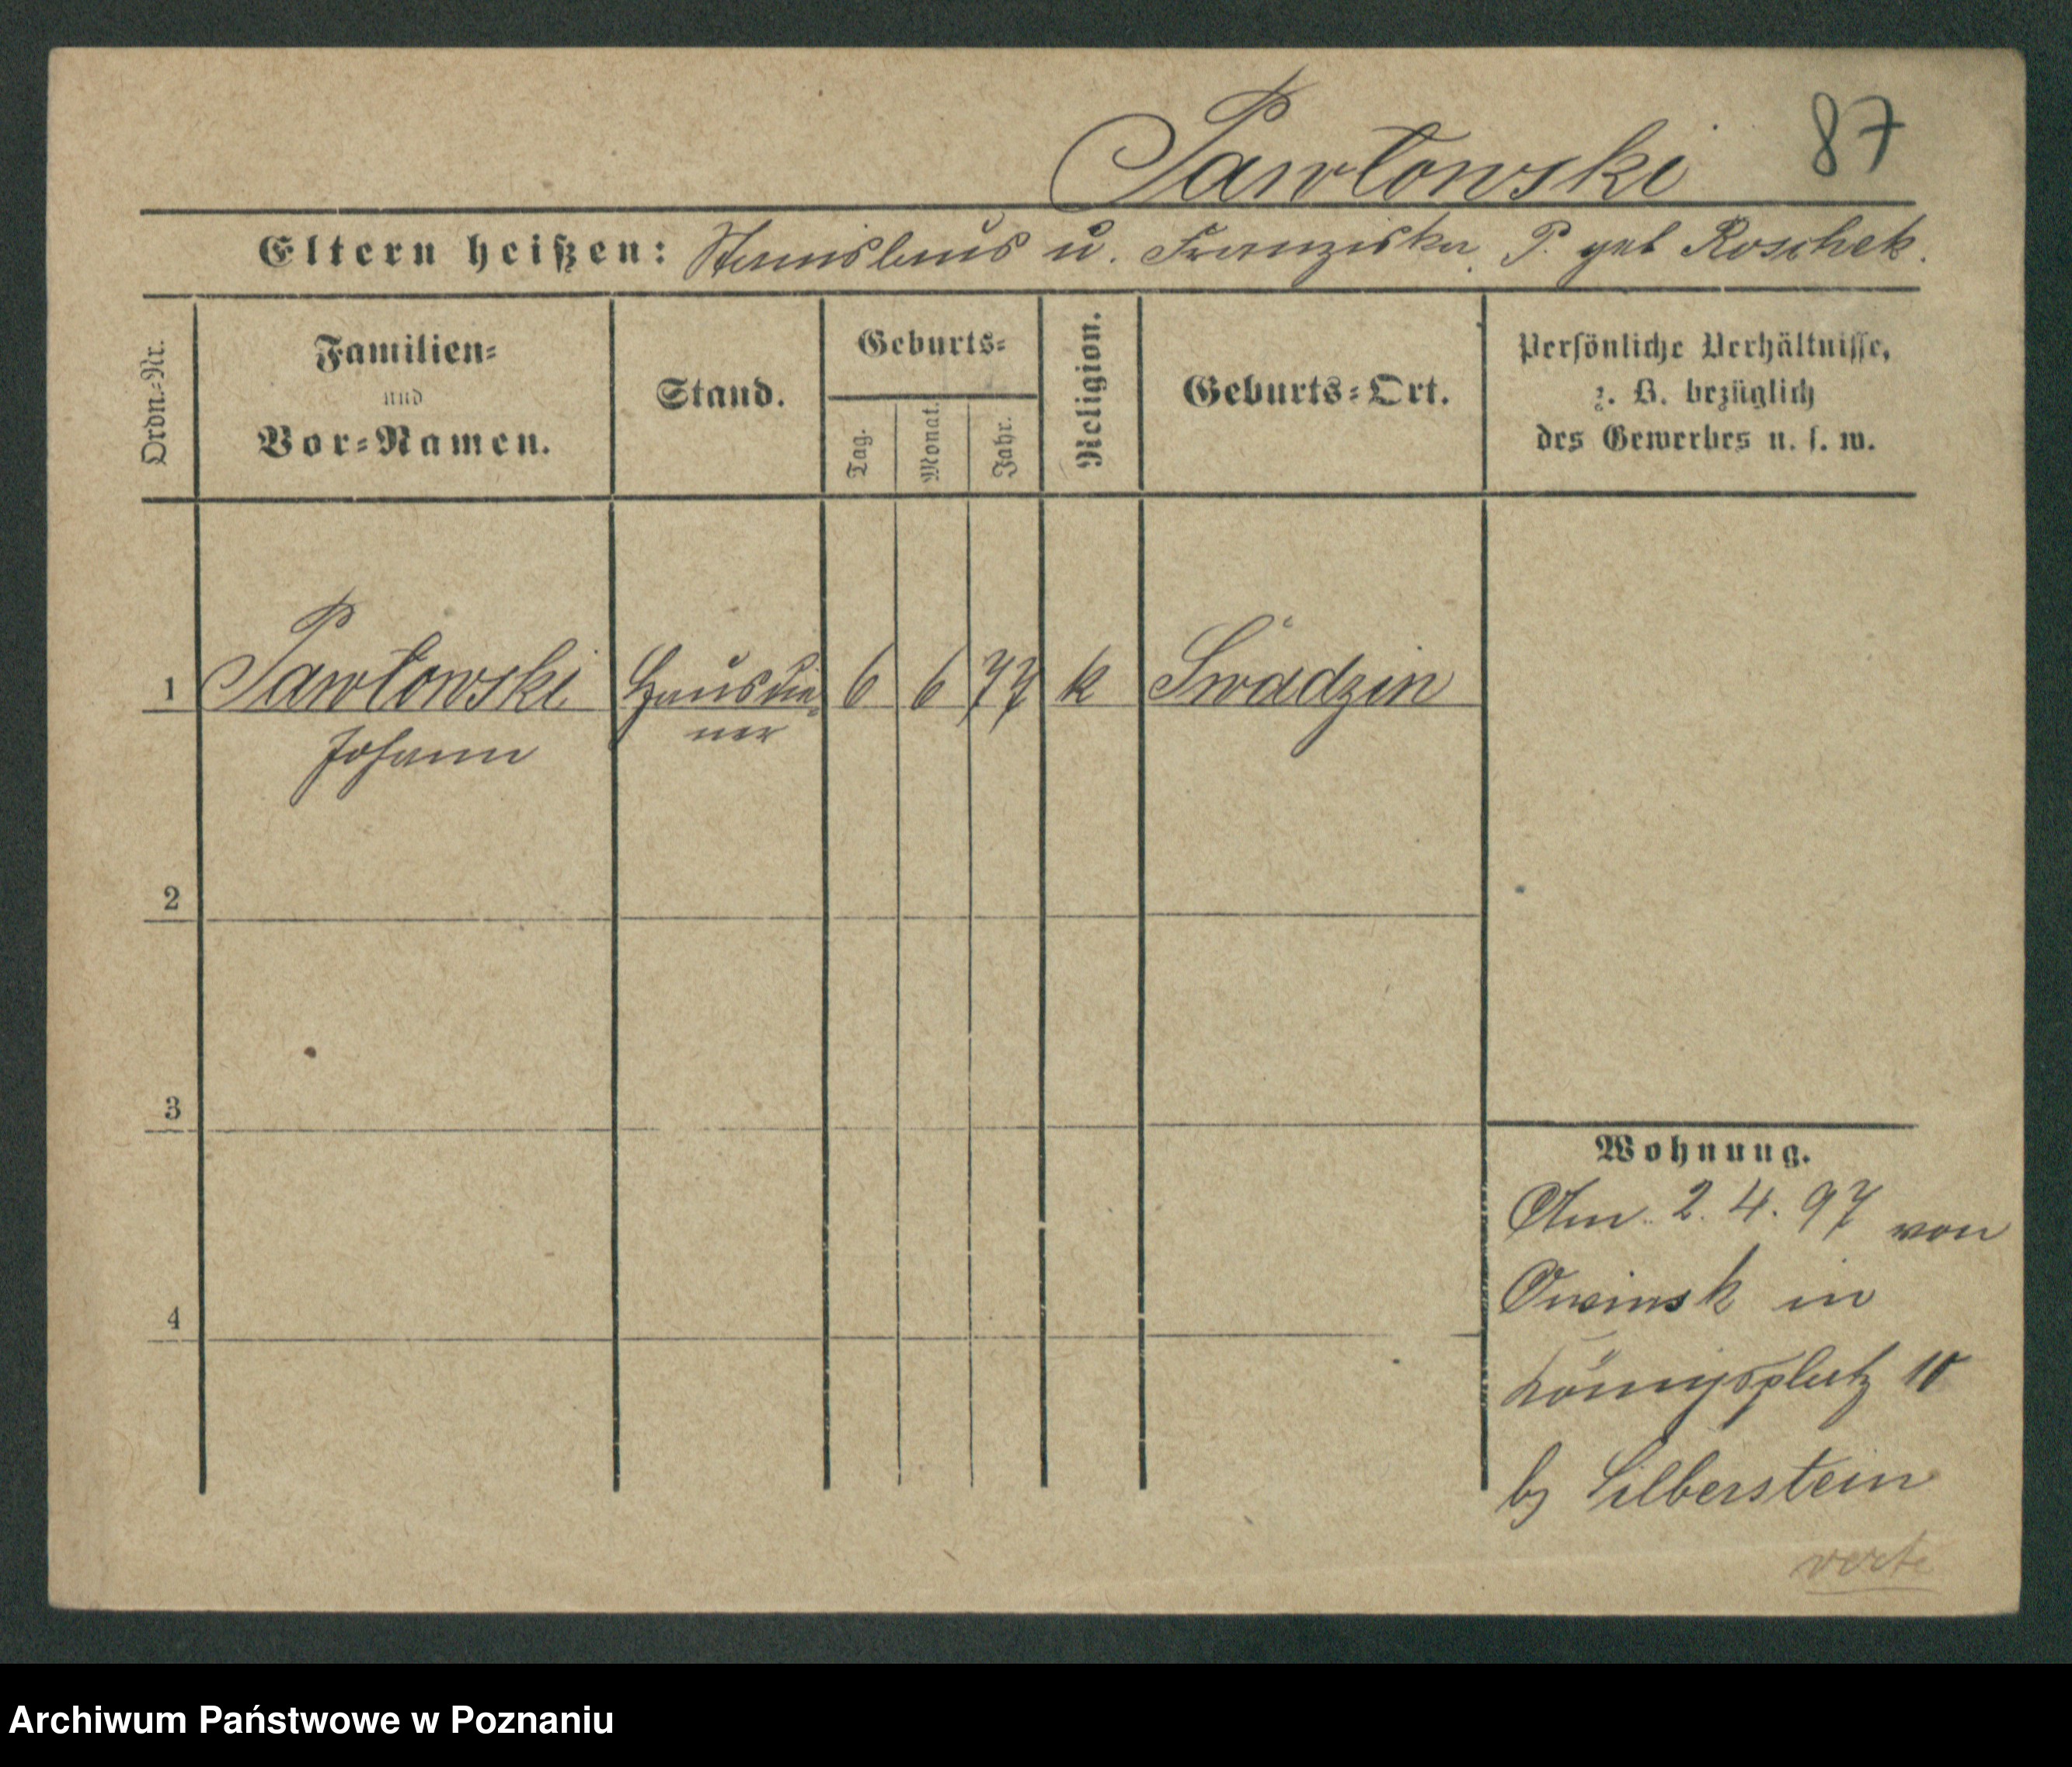 Pawłowski 87
Eltern heißen: Stanislaus u. Franziska P. geb Roschek.
Ordn.=Nr.
Familien=
und
Vor=Namen.
Stand.
Geburts=
Tag.
Monat.
Jahr.
Religion.
Geburts=Ort.
Persönliche Verhältnisse,
z. B. bezüglich
des Gewerbes u. s. w.
1 Pawłowski Hausdie= 6 6 77 k Swadzin
Johann ner
2
3
4
Wohnung.
Am 2. 4. 97 von
Owinsk in
Königsplatz 10
by Silberstein
verte
Archiwum Państwowe w Poznaniu